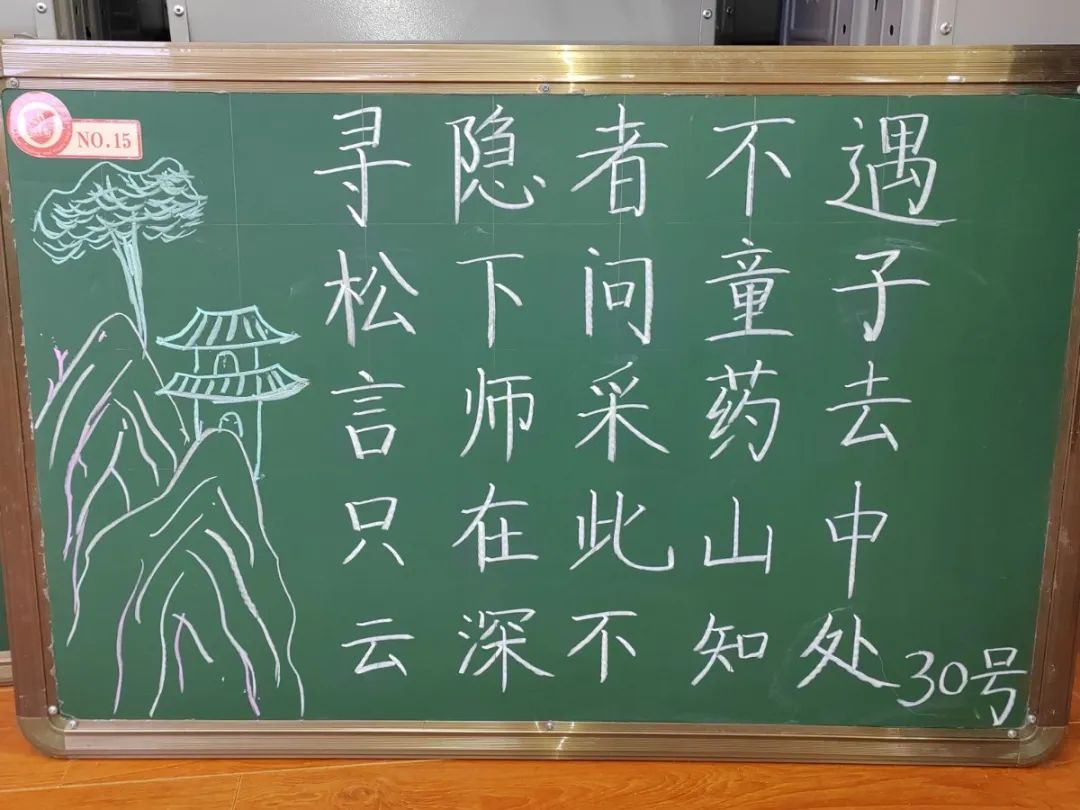 NO.15
寻隐者不遇
松下问童子
言师采药去
只在此山中
云深不知处
30号